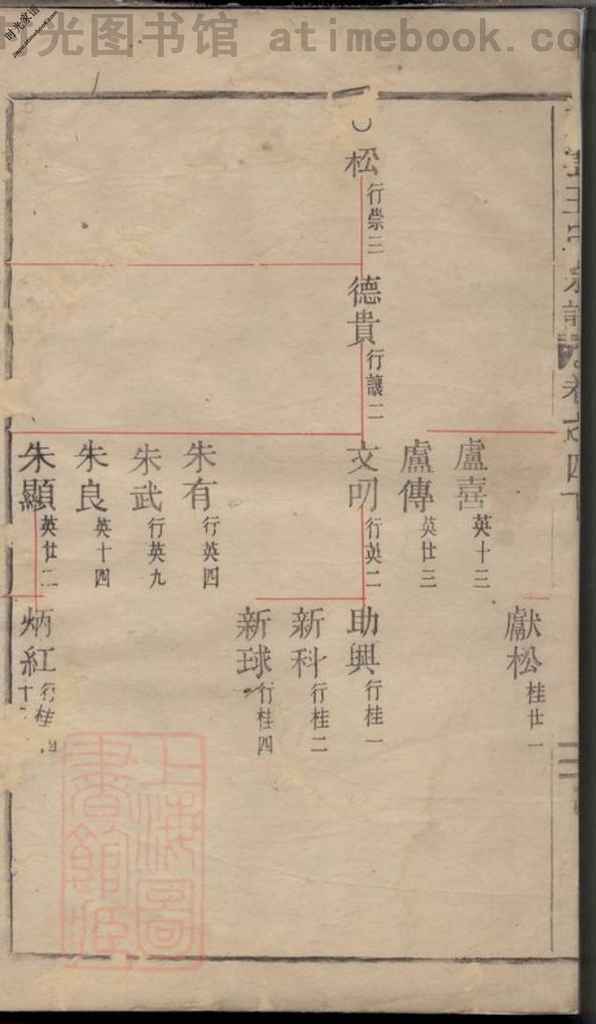 时光图书馆 atimebook.com
时光家谱
卷之四下
獻松 桂廿一
盧喜 英十三
盧傳 英廿三
松 行崇三
德貴 行讓二
文明 行英二
助興 行桂一
新科 行桂二
新球 行桂四
朱有 行英四
朱武 行英九
朱良 英十四
朱顯 英廿二
炳紅 行桂十
上海圖書館藏